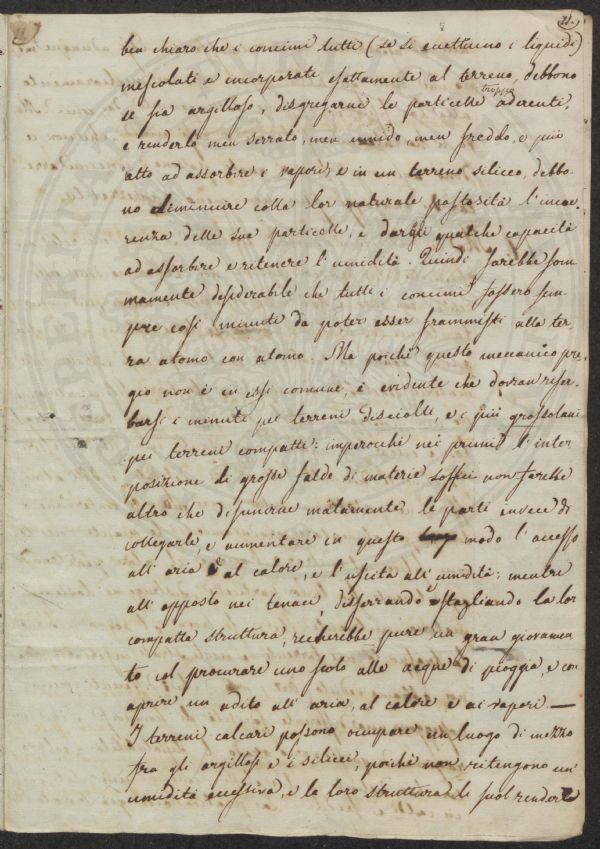 21.
ben chiaro che i concimi tutti (se si eccettuino i liquidi)
mescolati e incorporati esattamente al terreno, debbono
troppo
se sia argilloso, disgregarne le particelle aderenti,
e renderlo men serrato, men umido, men freddo, e più
atto ad assorbire i vapori; e in un terreno siliceo, debbo-
no diminuire colla lor naturale pastosità l'incoe-
renza delle sue particelle, e dargli qualche capacità
ad assorbire e ritenere l'umidità. Quindi sarebbe som-
mamente desiderabile che tutti i concimi fossero sem-
pre così minuti da poter esser frammisti alla ter-
ra atomo con atomo. Ma poichè questo meccanico pre-
gio non è in essi comune, è evidente che dovran riser-
barsi i minuti pei terreni disciolti, e i più grossolani
pei terreni compatti: imperocchè nei primi l'inter-
posizione di grosse falde di materie soffici non farebbe
altro che disunirne malamente le parti invece di
collegarle, e aumentare in questo modo l'accesso
all'aria e al calore, e l'uscita all'umidità; mentre
all'opposto nei tenaci, disserrando e stagliando la lor
compatta struttura, recherebbe pure un gran giovamen-
to col procurare uno scolo alle acque di pioggia, e con
aprire un adito all'aria, al calore e ai vapori. —
I terreni calcari possono occupare un luogo di mezzo
fra gli argillosi e i silicei, poichè non ritengono un'
umidità eccessiva, e la loro struttura li suol rendere